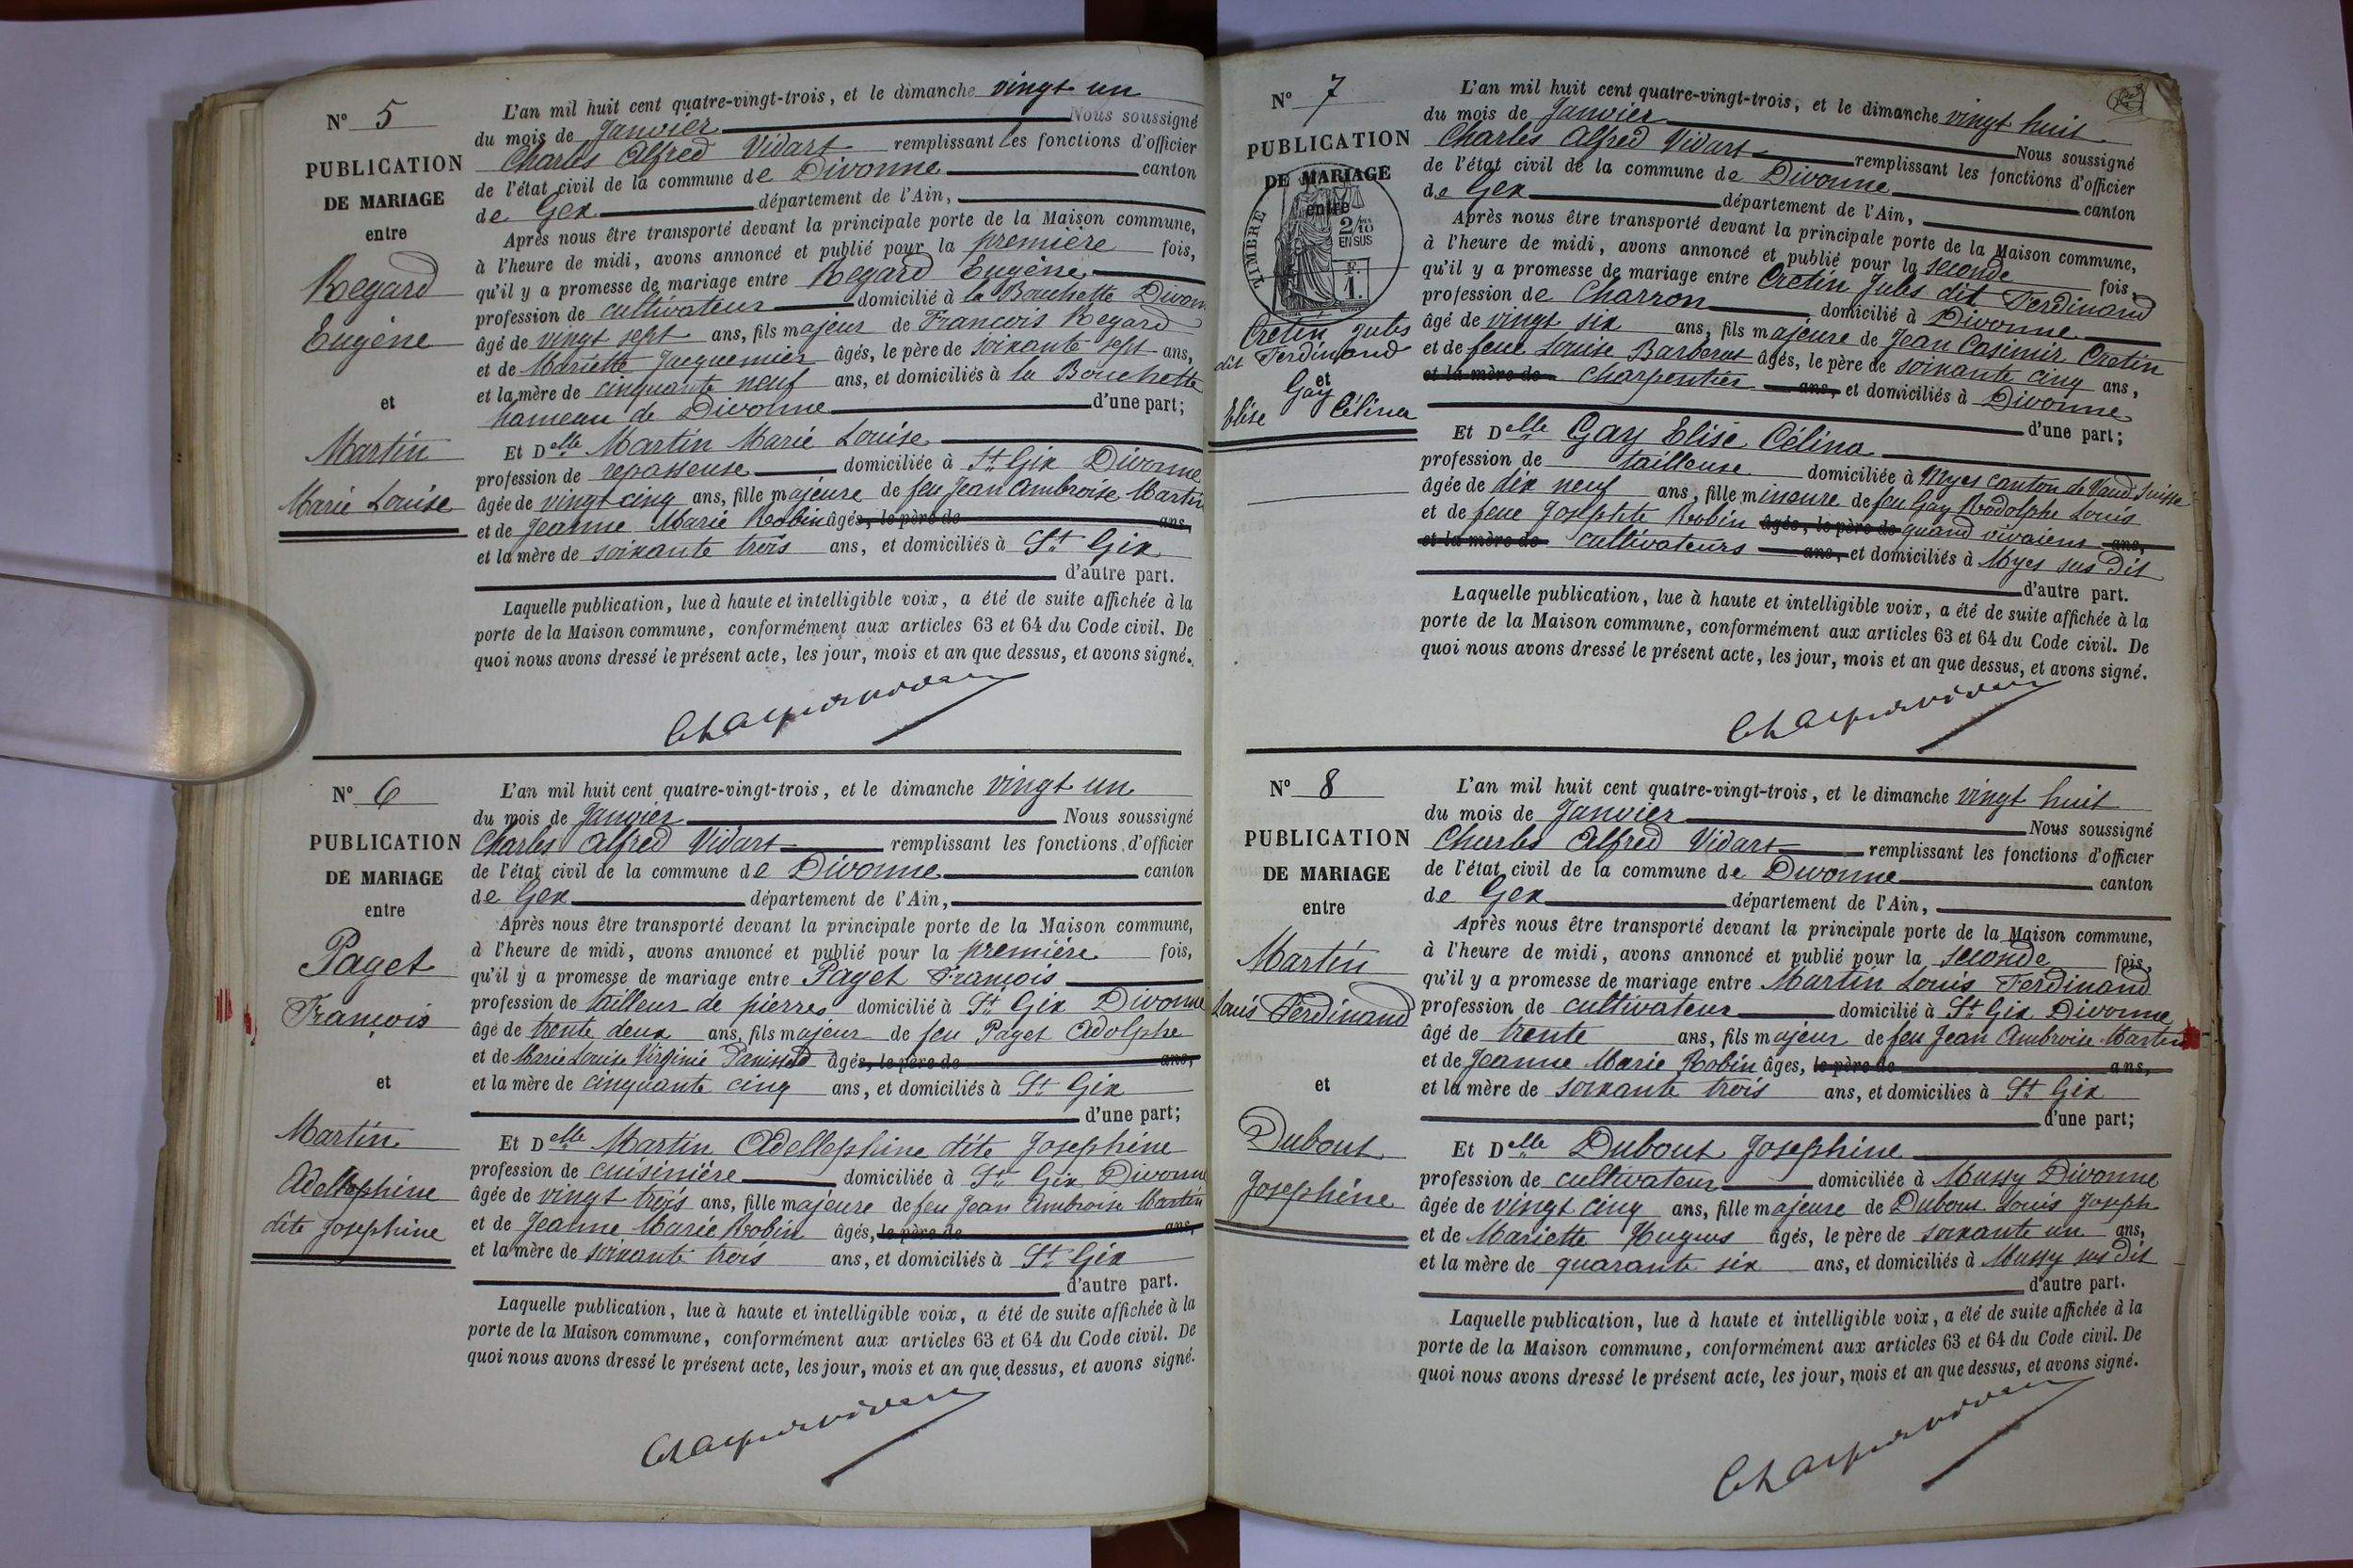 N° 5
PUBLICATION
DE MARIAGE
entre
Regard
Eugène
et
Martin
Marie Louise
L'an mil huit cent quatre-vingt-trois, et le dimanche vingt un
du mois de Janvier Nous soussigné
Charles Alfred Vidart remplissant les fonctions d'officier
de l'état civil de la commune de Divonne canton
de Gex département de l'Ain,
Après nous être transporté devant la principale porte de la Maison commune,
à l'heure de midi, avons annoncé et publié pour la première fois,
qu'il y a promesse de mariage entre Regard Eugène
profession de cultivateur domicilié à la Bouchette Divonne
âgé de vingt sept ans, fils majeur de François Regard
et de Mariette Jacquemier âgés, le père de soixante sept ans,
et la mère de cinquante neuf ans, et domiciliés à la Bouchette
hameau de Divonne d'une part;
Et Delle Martin Marie Louise
profession de repasseuse domiciliée à St Gix Divonne
âgée de vingt cinq ans, fille majeure de feu Jean Ambroise Martin
et de Jeanne Marie Robin âgés, le père de ans,
et la mère de soixante trois ans, et domiciliés à St Gix
d'autre part.
Laquelle publication, lue à haute et intelligible voix, a été de suite affichée à la
porte de la Maison commune, conformément aux articles 63 et 64 du Code civil. De
quoi nous avons dressé le présent acte, les jour, mois et an que dessus, et avons signé.
N° 6
PUBLICATION
DE MARIAGE
entre
Paget
François
et
Martin
Adellephine
dite Josephine
L'an mil huit cent quatre-vingt-trois, et le dimanche vingt un
du mois de Janvier Nous soussigné
Charles Alfred Vidart remplissant les fonctions d'officier
de l'état civil de la commune de Divonne canton
de Gex département de l'Ain,
Après nous être transporté devant la principale porte de la Maison commune,
à l'heure de midi, avons annoncé et publié pour la première fois,
qu'il y a promesse de mariage entre Paget François
profession de tailleur de pierres domicilié à St Gix Divonne
âgé de trente deux ans, fils majeur de feu Paget Adolphe
et de Marie Louise Virginie Panissod âgés, le père de ans,
et la mère de cinquante cinq ans, et domiciliés à St Gix
d'une part;
Et Delle Martin Adellephine dite Josephine
profession de cuisinière domiciliée à St Gix Divonne
âgée de vingt trois ans, fille majeure de feu Jean Ambroise Martin
et de Jeanne Marie Robin âgés, le père de ans,
et la mère de soixante trois ans, et domiciliés à St Gix
d'autre part.
Laquelle publication, lue à haute et intelligible voix, a été de suite affichée à la
porte de la Maison commune, conformément aux articles 63 et 64 du Code civil. De
quoi nous avons dressé le présent acte, les jour, mois et an que dessus, et avons signé.
N° 7
PUBLICATION
DE MARIAGE
entre
TIMBRE
2/10
EN SUS
F.
1.
Cretin Jules
dit Ferdinand
et
Gay
Elise Célina
L'an mil huit cent quatre-vingt-trois, et le dimanche vingt huit
du mois de Janvier Nous soussigné
Charles Alfred Vidart remplissant les fonctions d'officier
de l'état civil de la commune de Divonne canton
de Gex département de l'Ain,
Après nous être transporté devant la principale porte de la Maison commune,
à l'heure de midi, avons annoncé et publié pour la seconde fois,
qu'il y a promesse de mariage entre Cretin Jules dit Ferdinand
profession de Charron domicilié à Divonne
âgé de vingt six ans, fils majeure de Jean Casimir Cretin
et de feue Louise Barberat âgés, le père de soixante cinq ans,
et la mère de Charpentier ans, et domiciliés à Divonne
d'une part;
Et Delle Gay Elise Célina
profession de tailleuse domiciliée à Myes canton de Vaud Suisse
âgée de dix neuf ans, fille mineure de feu Gay Rodolphe Louis
et de feue Josephte Robin âgés, le père de quand vivaient ans,
et la mère de cultivateurs ans, et domiciliés à Myes sus dit
d'autre part.
Laquelle publication, lue à haute et intelligible voix, a été de suite affichée à la
porte de la Maison commune, conformément aux articles 63 et 64 du Code civil. De
quoi nous avons dressé le présent acte, les jour, mois et an que dessus, et avons signé.
N° 8
PUBLICATION
DE MARIAGE
entre
Martin
Louis Ferdinand
et
Dubout
Josephine
L'an mil huit cent quatre-vingt-trois, et le dimanche vingt huit
du mois de Janvier Nous soussigné
Charles Alfred Vidart remplissant les fonctions d'officier
de l'état civil de la commune de Divonne canton
de Gex département de l'Ain,
Après nous être transporté devant la principale porte de la Maison commune,
à l'heure de midi, avons annoncé et publié pour la seconde fois,
qu'il y a promesse de mariage entre Martin Louis Ferdinand
profession de cultivateur domicilié à St Gix Divonne
âgé de trente ans, fils majeur de feu Jean Ambroise Martin
et de Jeanne Marie Robin âges, le père de ans,
et la mère de soixante trois ans, et domicilies à St Gix
d'une part;
Et Delle Dubout Josephine
profession de cultivateur domiciliée à Mussy Divonne
âgée de vingt cinq ans, fille majeure de Dubout Louis Joseph
et de Mariette Hugues âgés, le père de soixante un ans,
et la mère de quarante six ans, et domiciliés à Mussy sus dit
d'autre part.
Laquelle publication, lue à haute et intelligible voix, a été de suite affichée à la
porte de la Maison commune, conformément aux articles 63 et 64 du Code civil. De
quoi nous avons dressé le présent acte, les jour, mois et an que dessus, et avons signé.